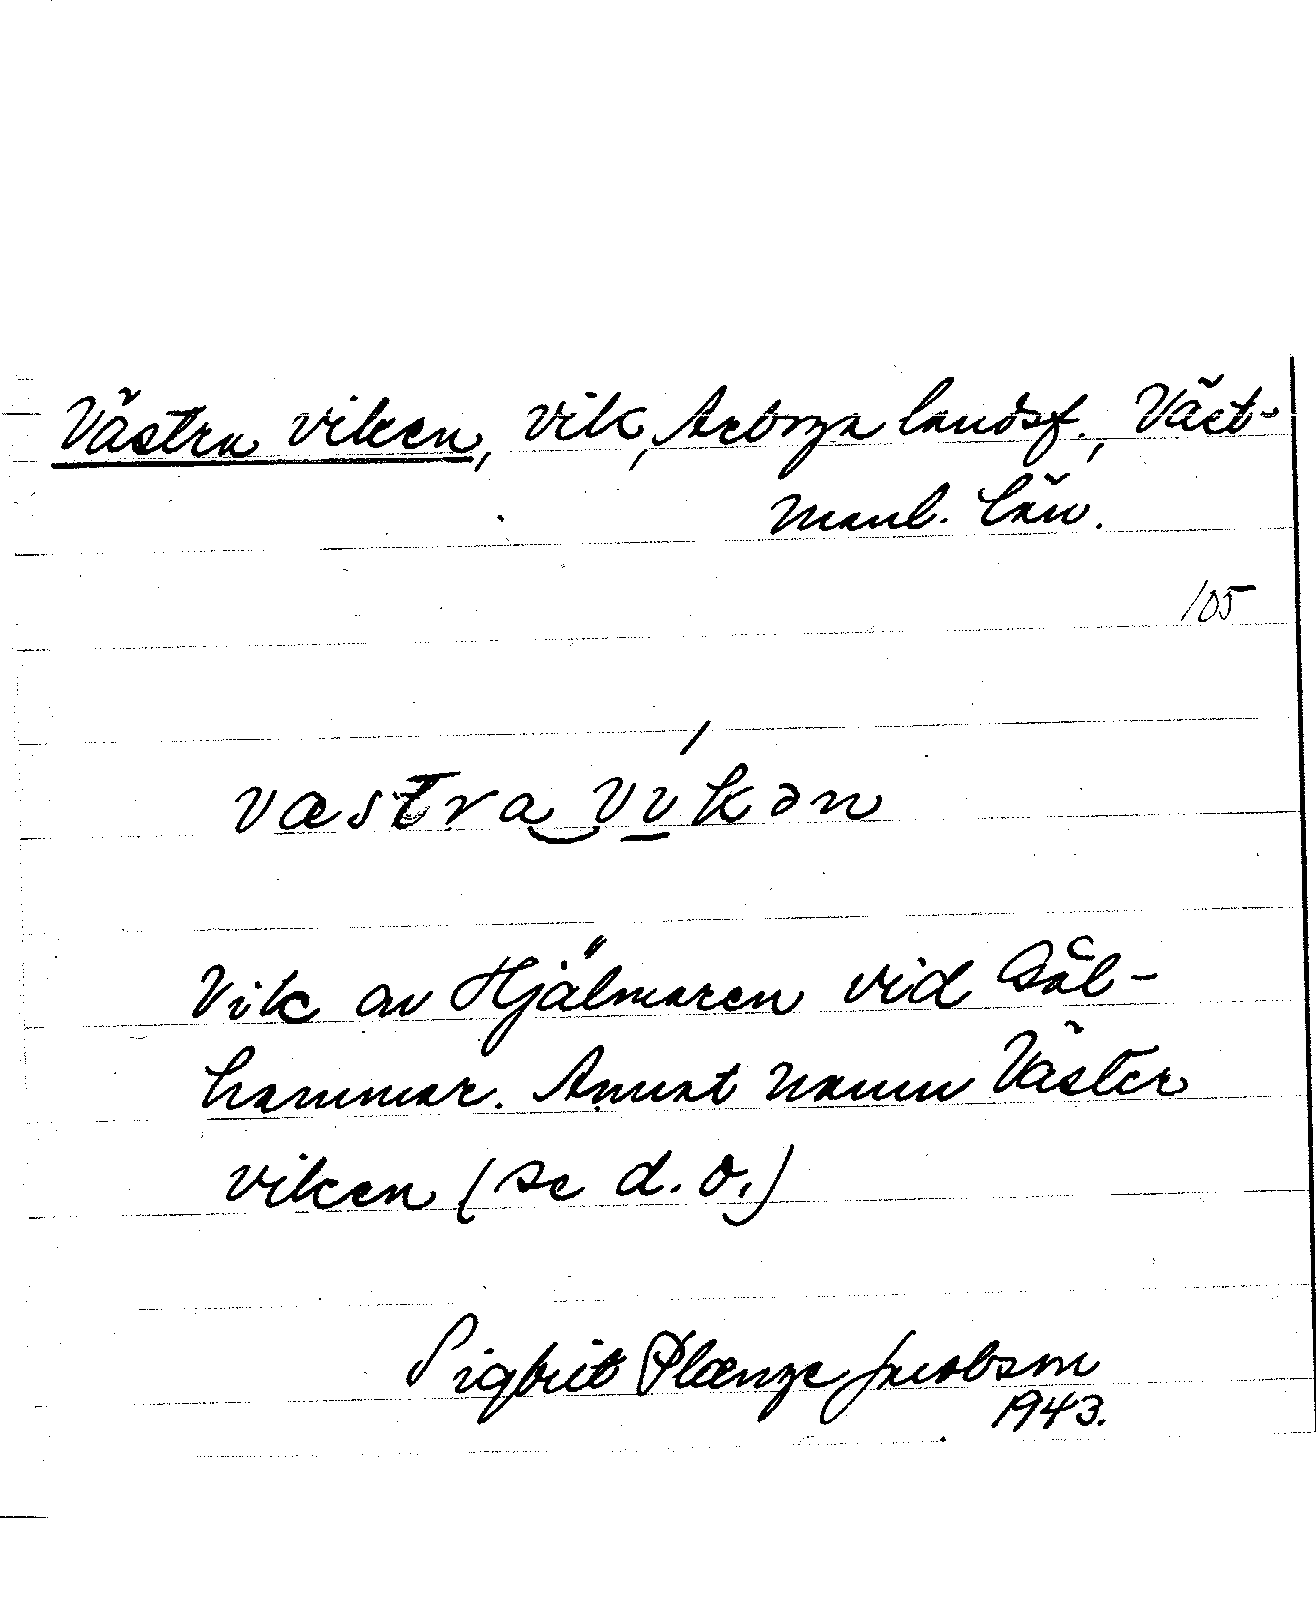 Västra viken, vik, Arboga landsf., Väst-
manl. län.
105
væstra vikən
Vik av Hjälmaren vid Sål-
hammar. Annat namn Väster
viken (se d. o.)
Sigbrit Plænge Jacobson
1943.